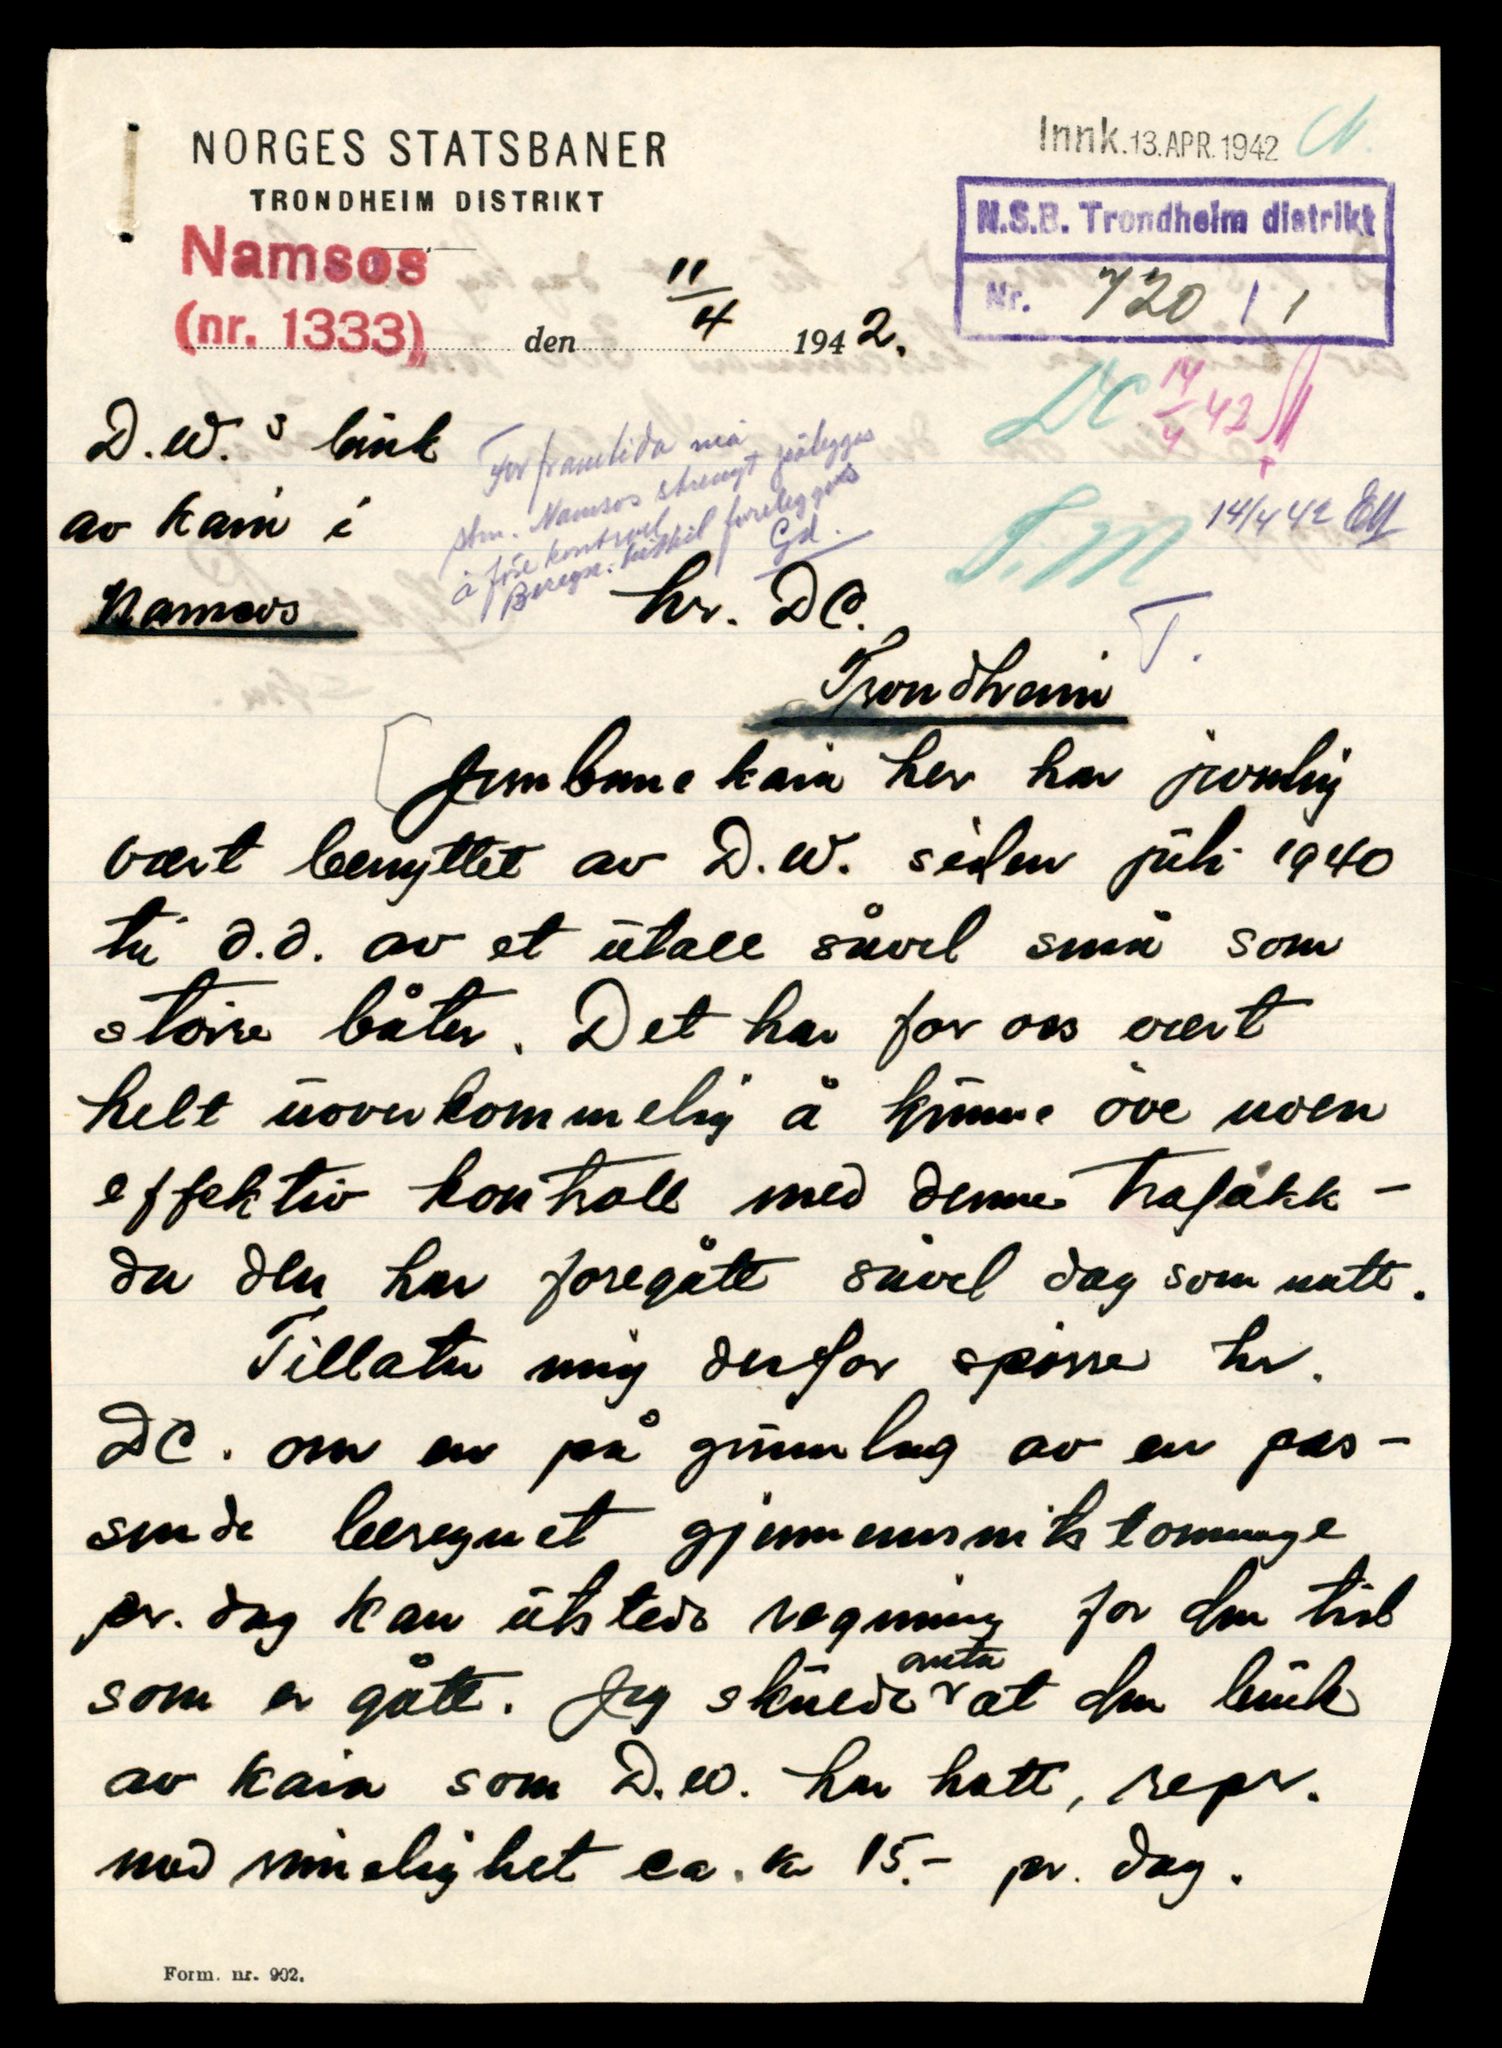 NORGES STATSBANER
TRONDHEIM DISTRIKT
Innk. 13. APR. 1942
N.S.B. Trondheim distrikt
Nr. 720 / 1
Namsos
(nr. 1333)
den 11/4 1942.
DC 14/4 42
T.M 14/4 42
D.W.s bruk
av kain i
Namsos
For framtida må
stm. Namsos strengt pålegges
å före kontroll
Beregn. tilskil forelegges
Gd.
hr. DC.
T.
Trondheim
Jernbanekaia her har jevnlig
vært benyttet av D.W. siden juli 1940
til d.d. av et utall såvel små som
större båter. Det har for oss vært
helt uoverkommelig å kunne öve noen
effektiv kontroll med denne trafikk -
da den har foregått såvel dag som natt.
Tillater mig derfor spörre hr.
DC. om en på grunnlag av en pas-
sende beregnet gjennemsnitstonnage
pr. dag kan utstede regning for den tid
som er gått. Jeg skulde anta at den bruk
av kaia som D.W. har hatt, repr.
med rimelighet ca. kr 15.- pr. dag.
Form. nr. 902.